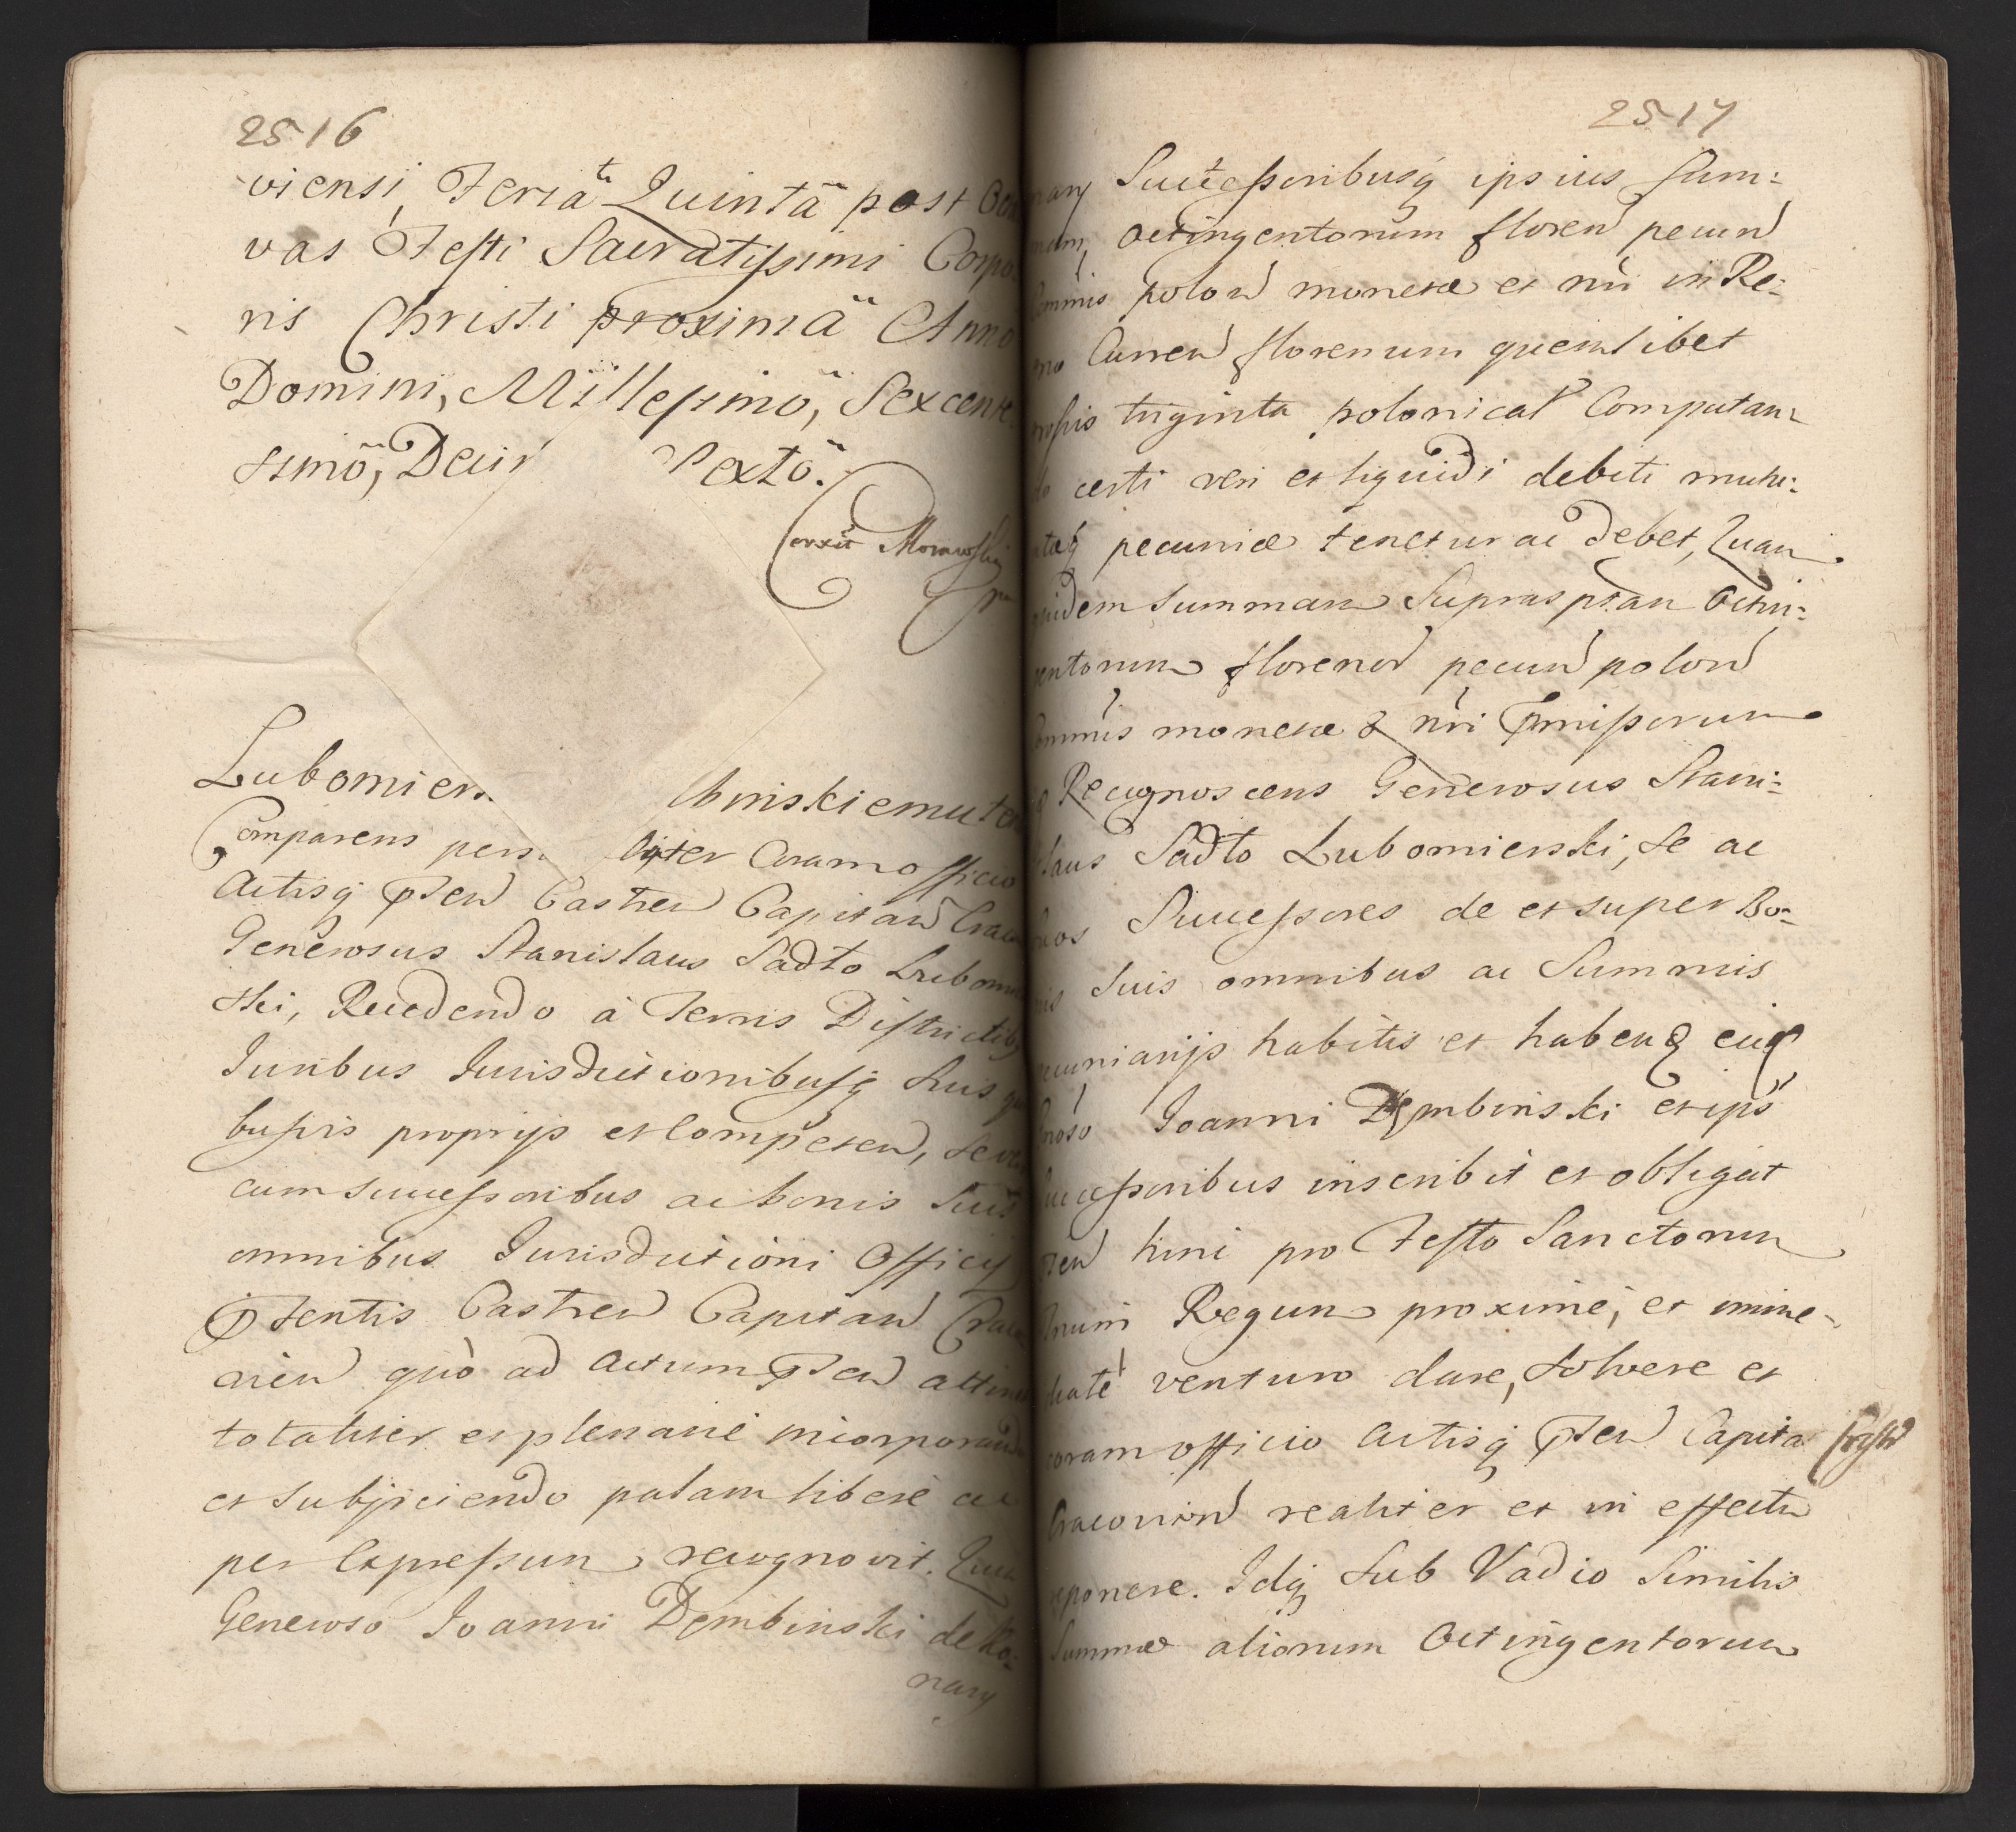 2516
viensi, Feria Quinta post Octa
vas Festi Sacratissimi Corpo
ris Christi proximâ Anno
Domini, Millesimo, Sexcente
simo, Deci Sexto.
Corxit Morawski
Lubomiers binskiemu
Comparens pers liter Coram officio
Actisq pnten Castren Capitan Crac
Generosus Stanislaus Sadło Lubom
ski, Recedendo à Terris Districtibq
Iuribus Iurisdictionibusq suis
busvis proprijs et Competen, se
cum successoribus ac bonis Suis
omnibus Iurisdictioni Officij
pntentis Castren Capitan Crac
vien quò ad Actum pnten attin
totaliter et plenarie incorporand
et subijciendo palam libere ac
per Expressum recognovit. Quia
Generoso Joanni Dembinski de Ko-
nary
2517
nary Successoribusq ipsius Sum:
mam, Octingentorum floren pecun
Commis polon monetæ et nri in Re:
gno Curren florenum quemlibet
grossis triginta polonical Computan:
do certi veri et liquidi debiti mutu:
atæq pecuniæ tenetur ac debet, Quam
quidem summam Suprasptam Octin:
gentorum florenor pecun polon
Commis monetæ & nri pmissorum
Recognoscens Generosus Stani:
slaus Sadło Lubomierski, Se ac
suos Successores de et super Bo:
nis suis omnibus ac Summis
pecuniarijs habitis et haben eid
Gnoso Joanni Dembinski et ips
Successoribus inscribit et obligat
pnten hinc pro Festo Sanctorum
Trium Regum proxime, et imme-
diate venturo dare, solvere et
coram officio Actisq pnten Capita Castr
Cracovien realiter et in effectu
reponere. Idq sub Vadio Similis
Summæ aliorum Octingentorum